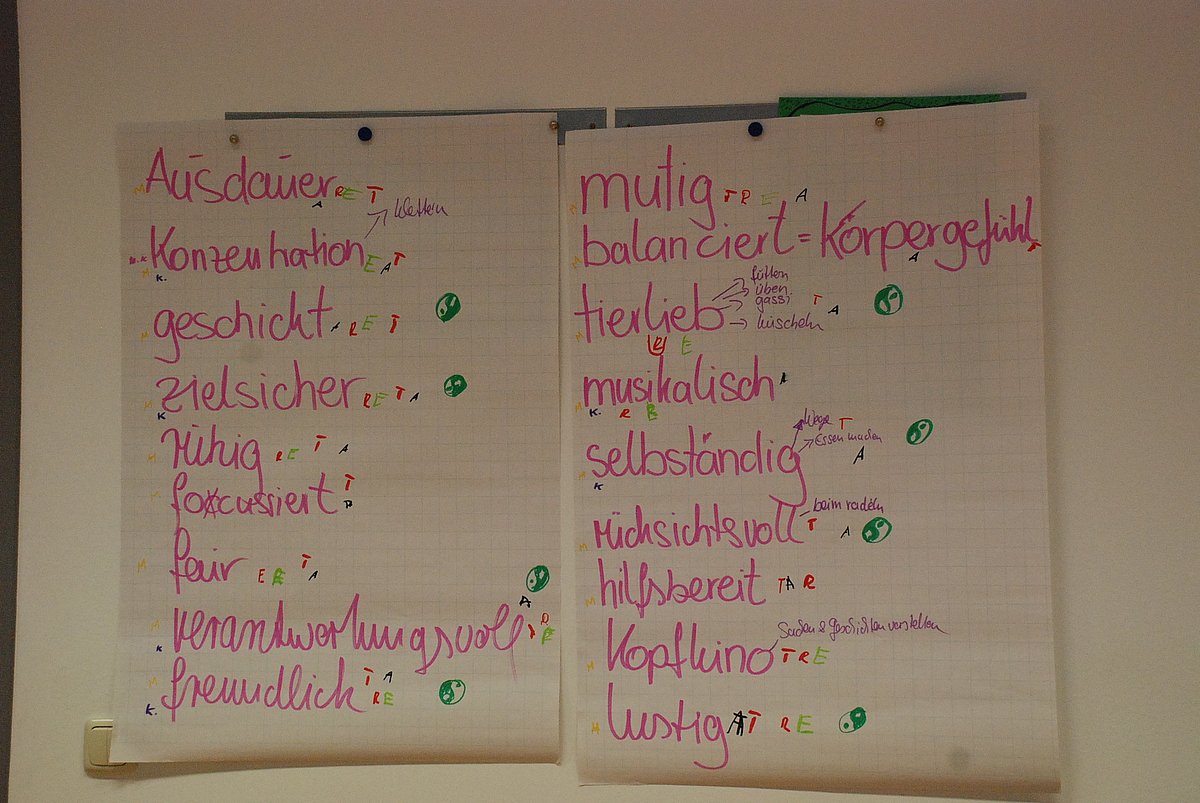 M Ausdauer A R E T
wettern
K. Konzentration E A T
M geschickt A R E T
M K zielsicher R E T A
M ruhig R E T A
M fokussiert T A
M fair E E T A
M K verantwortungsvoll A R E
M K. freundlich T A R E
M mutig T R E A
M balanciert = Körpergefühl A T
M tierlieb T A R E
füttern
üben
gassi
kuscheln
M K. musikalisch A R E
M K selbständig T A
Wege
Essen machen
M rücksichtsvoll T A
beim radeln
M hilfsbereit T A R
M Kopfkino T R E
Sachen & geschichten vorstellen
M lustig A T R E